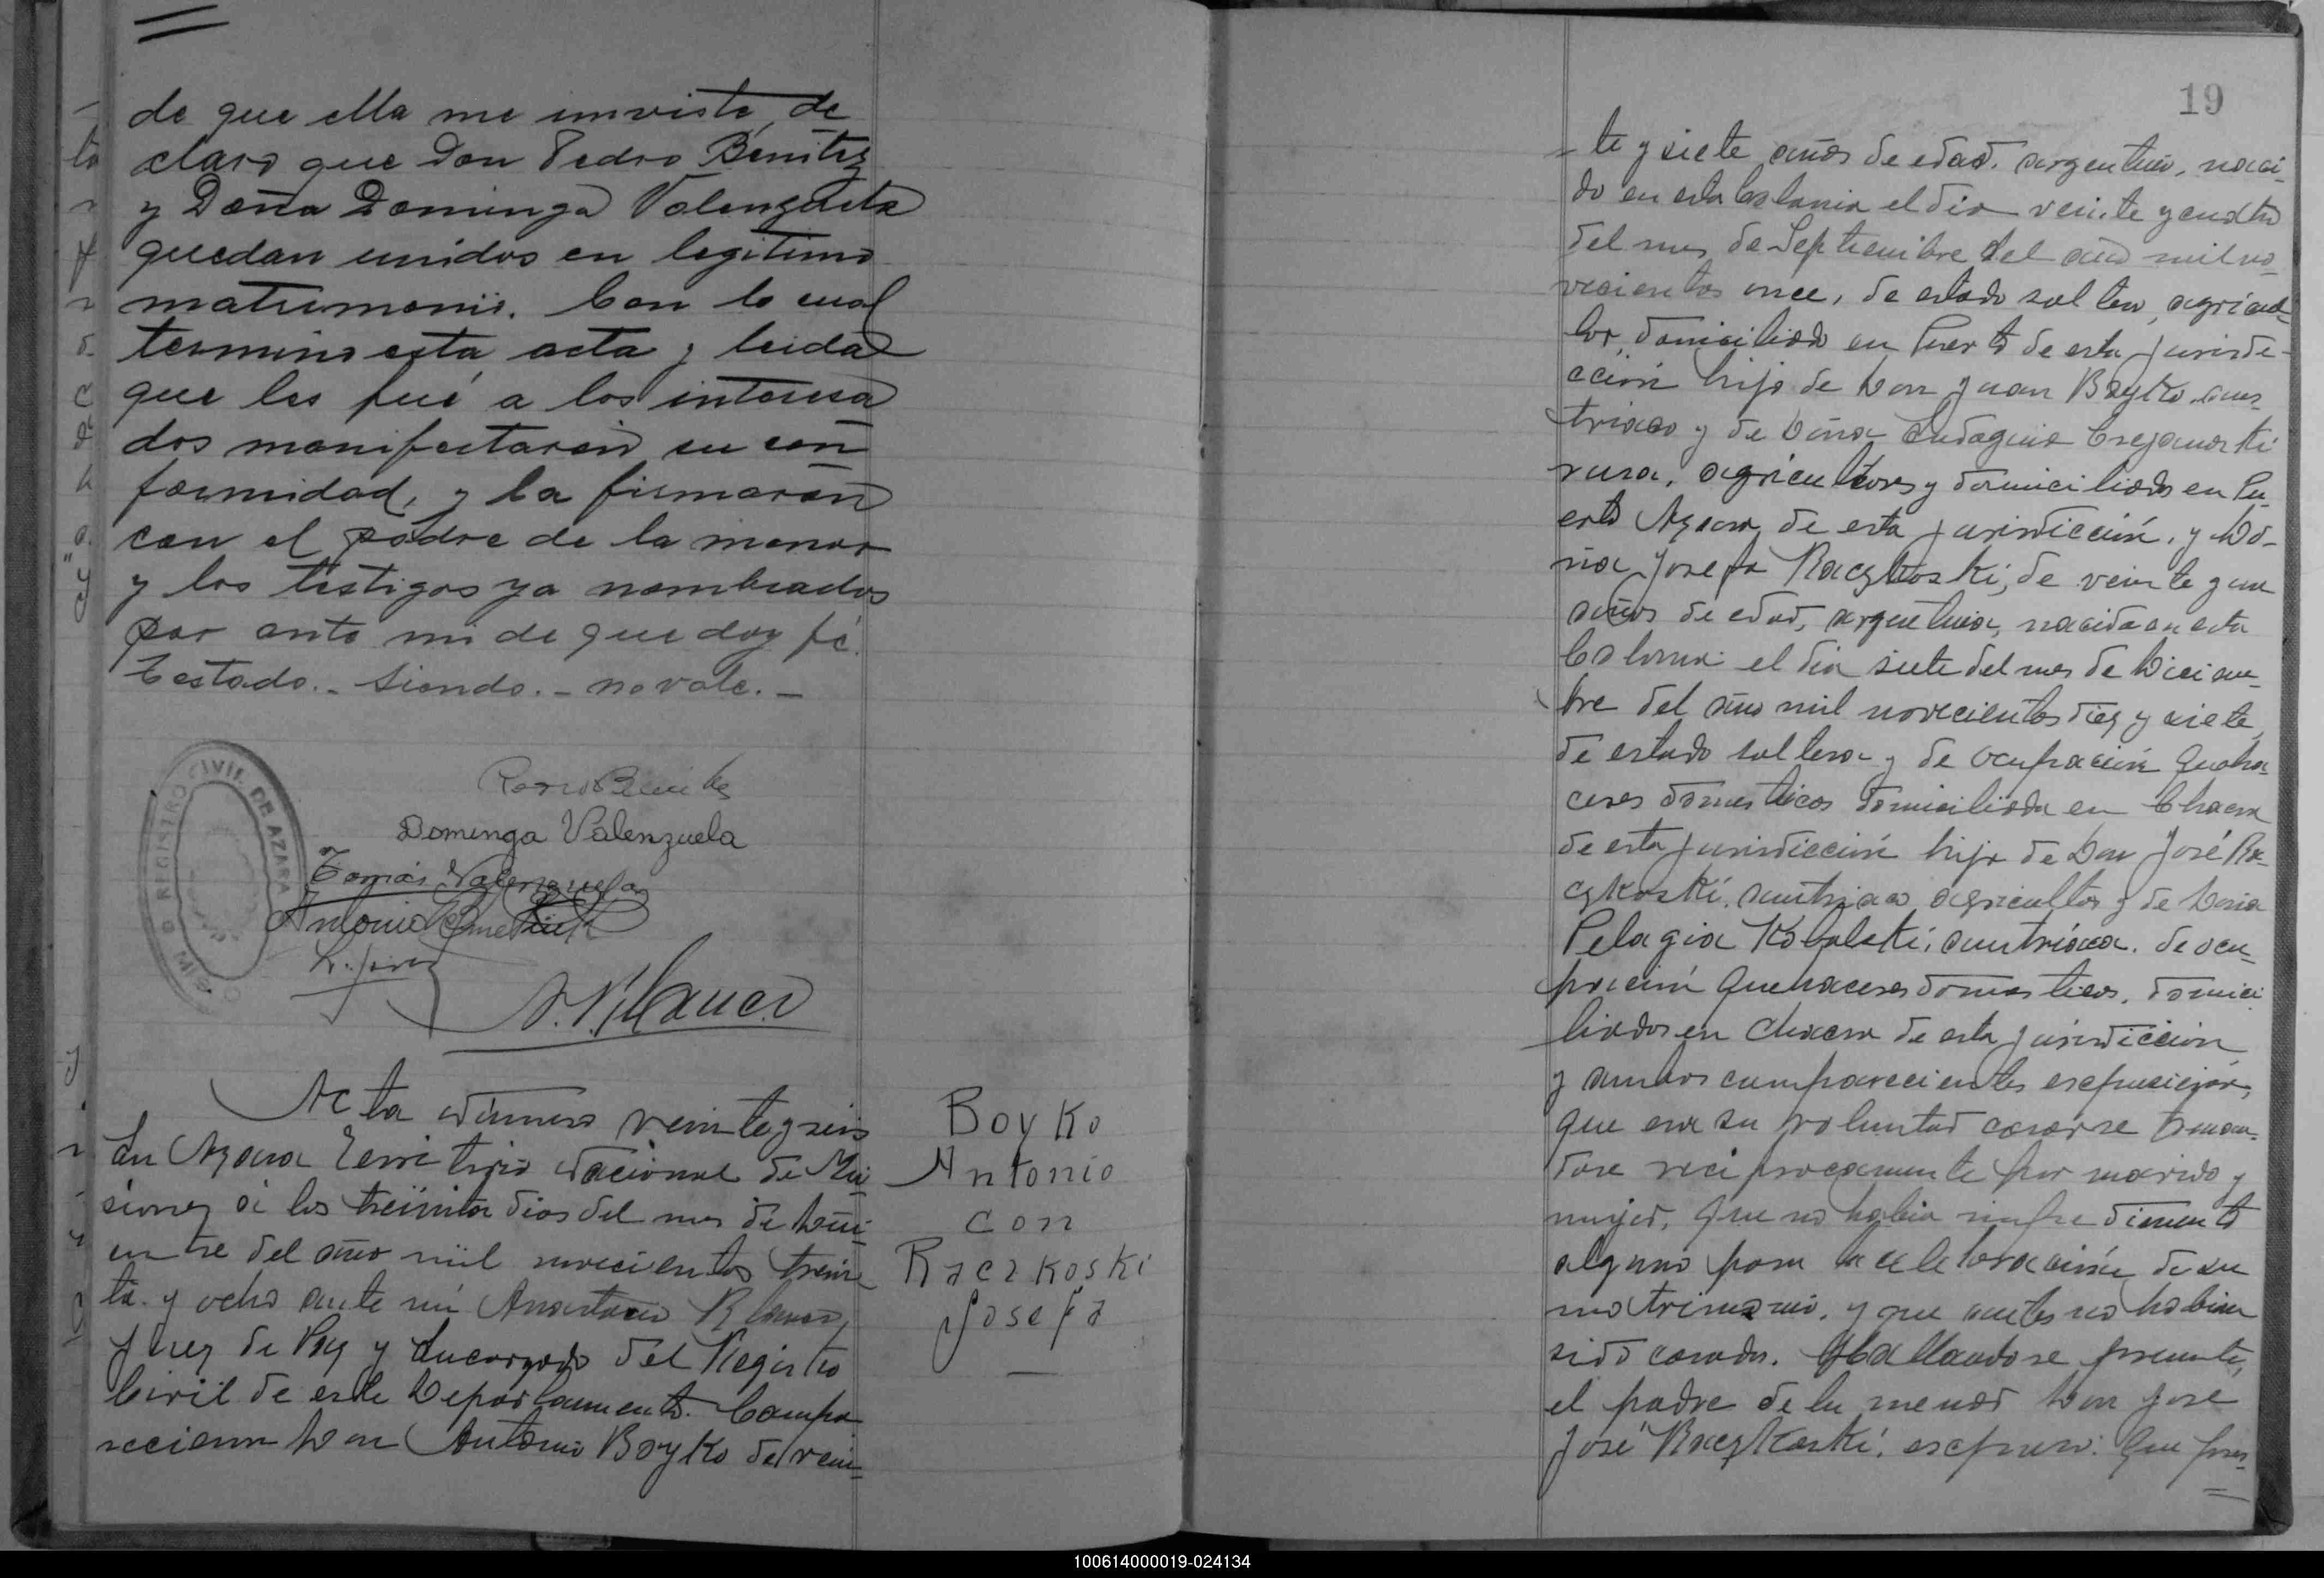 de que ella me inviste, de
claro que Don Pedro Benitez
y Doña Dominga Valenzuela
quedan unidos en legitimo
matrimonio. Con lo cual
termino esta acta y leida
que les fué a los interesa
dos manifestaron su con
formidad, y la firmaron
con el padre de la menor
y los testigos ya nombrados
por ante mi de que doy fé.
Testado._ siendo._ no vale._
REGISTRO CIVIL DE AZARA
Pedro Benitez
Dominga Valenzuela
Tomás Valenzuela
Antonio
A. Blanco
Acta número veinte y seis
En Azara Territorio Nacional de Mi-
siones á los treinta dias del mes de Dici-
embre del año mil novecientos trein
ta y ocho ante mi Anastacio Blanco,
Juez de Paz y Encargado del Registro
Civil de este Departamento. Compa
recieron Don Antonio Boyko de vein-
Boyko
Antonio
con
Raczkoski
Josefa
19
te y siete años de edad, argentino, naci-
do en esta Colonia el dia veinte y cuatro
del mes de Septiembre del año mil no-
vecientos once, de estado soltero, agricul-
tor, domiciliado en Puerto de esta jurisdi-
cción hijo de Don Juan Boyko, aus-
triaco y de Doña
rusa, agricultores y domiciliados en Pu-
erto Azara de esta jurisdicción, y Do-
ña Josefa Raczkoski, de veinte y un
años de edad, argentina, nacida en esta
Colonia el dia siete del mes de Diciem-
bre del año mil novecientos diez y siete,
de estado soltera y de ocupación Queha-
ceres domesticos domiciliada en Chacra
de esta jurisdicción hija de Don José Ra-
czkoski, austriaco agricultor y de Doña
Pelagia Kobalski, austriaca, de ocu-
pación Quehaceres domesticos, domici
liados en Chacra de esta jurisdicción
y ambos comparecientes
que era su voluntad casarse toman-
dose reciprocamente por marido y
mujer. Que no habia impedimento
alguno para la celebración de su
matrimonio, y que antes no habian
sido casados. Hallandose presente,
el padre de la menor Don José
José Raczkoski, Que pres-
100614000019-024134